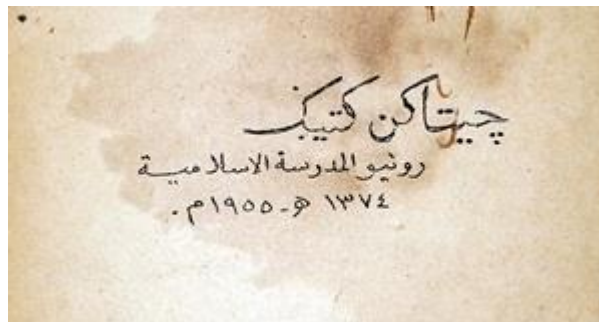 چيتاكن كتيݢ
رونيو المدرسة الاسلامية
١٣٧٤ هـ - ١٩٥٥ م.